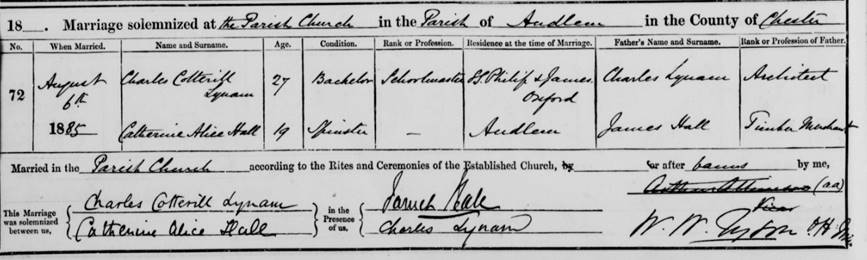 18__. Marriage solemnized at the Parish Church in the Parish of Audlem in the County of Chester
No. When Married. Name and Surname. Age. Condition. Rank or Profession. Residence at the time of Marriage. Father's Name and Surname. Rank or Profession of Father.
72 August 6th 1885 Charles Cotterill Lynam 27 Bachelor Schoolmaster SS. Philip & James Oxford Charles Lynam Architect
Catherine Alice Hall 19 Spinster — Audlem James Hall Timber Merchant
Married in the Parish Church according to the Rites and Ceremonies of the Established Church, by or after banns by me,
This Marriage was solemnized between us, Charles Cotterill Lynam Catherine Alice Hall in the Presence of us, James Hall Charles Lynam
(aa)
Vicar
W. W.